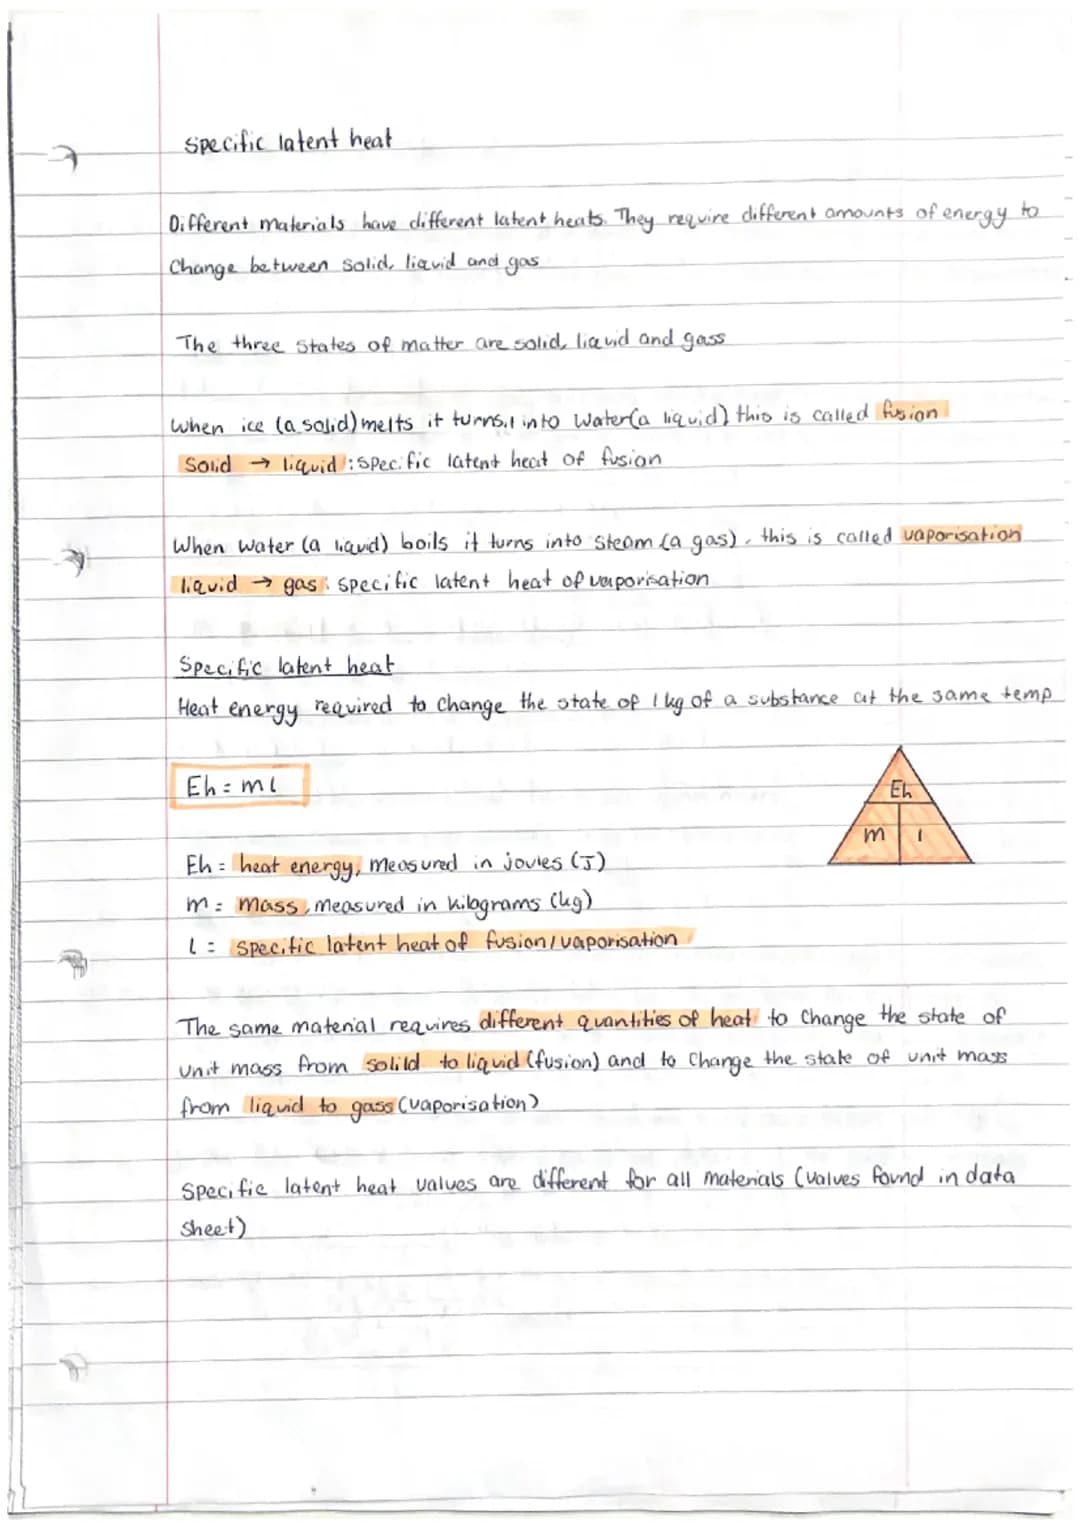 Specific latent heat
Different materials have different latent heats. They require different amounts of energy to
Change between solid, liquid and gas
The three states of matter are solid, liquid and gass
When ice (a solid) melts it turns into water (a liquid) this is called fusion
Solid → liquid : Specific latent heat of fusion
When water (a liquid) boils it turns into steam (a gas), this is called vaporisation
liquid → gas : specific latent heat of vaporisation
Specific latent heat
Heat energy required to change the state of 1 kg of a substance at the same temp
Eh = ml
Eh
m l
Eh = heat energy, measured in joules (J)
m = mass, measured in kilograms (kg)
l = specific latent heat of fusion/vaporisation
The same material requires different quantities of heat to change the state of
unit mass from solild to liquid (fusion) and to change the state of unit mass
from liquid to gass (vaporisation)
Specific latent heat values are different for all materials (values found in data
sheet)